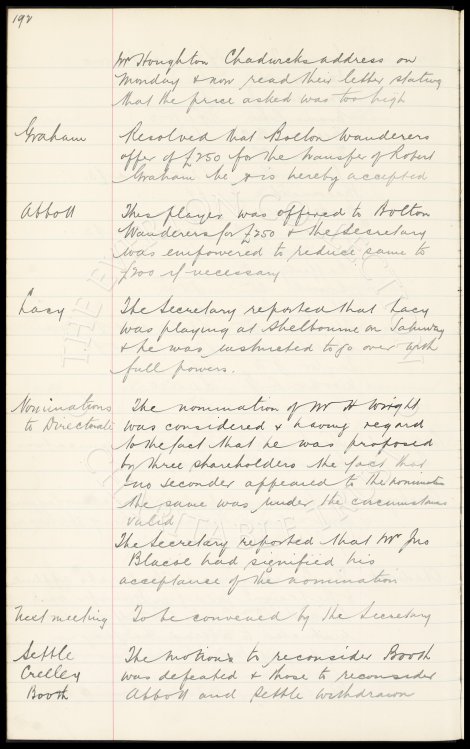 192
Mr Houghton Chadwicks address on
Monday & now read their letter stating
that the price asked was too high
Graham Resolved that Bolton Wanderers
offer of £250 for the transfer of Robert
Graham be & is hereby accepted
Abbott This player was offered to Bolton
Wanderers for £250 & the Secretary
was empowered to reduce same to
£200 if necessary
Lacy The Secretary reported that Lacy
was playing at Shelbourne on Saturday
& he was instructed to go over with
full powers.
Nominations The nomination of Mr W Wright
to Directorate was considered & having regard
to the fact that he was proposed
by three shareholders the fact that
no seconder appeared to the nomination
the same was under the circumstances
valid
The Secretary reported that Mr Jno
had signified his
acceptance of the nomination
Next meeting To be convened by the Secretary
Settle The motions to reconsider Booth
Crelley was defeated & those to reconsider
Booth Abbott and Settle withdrawn